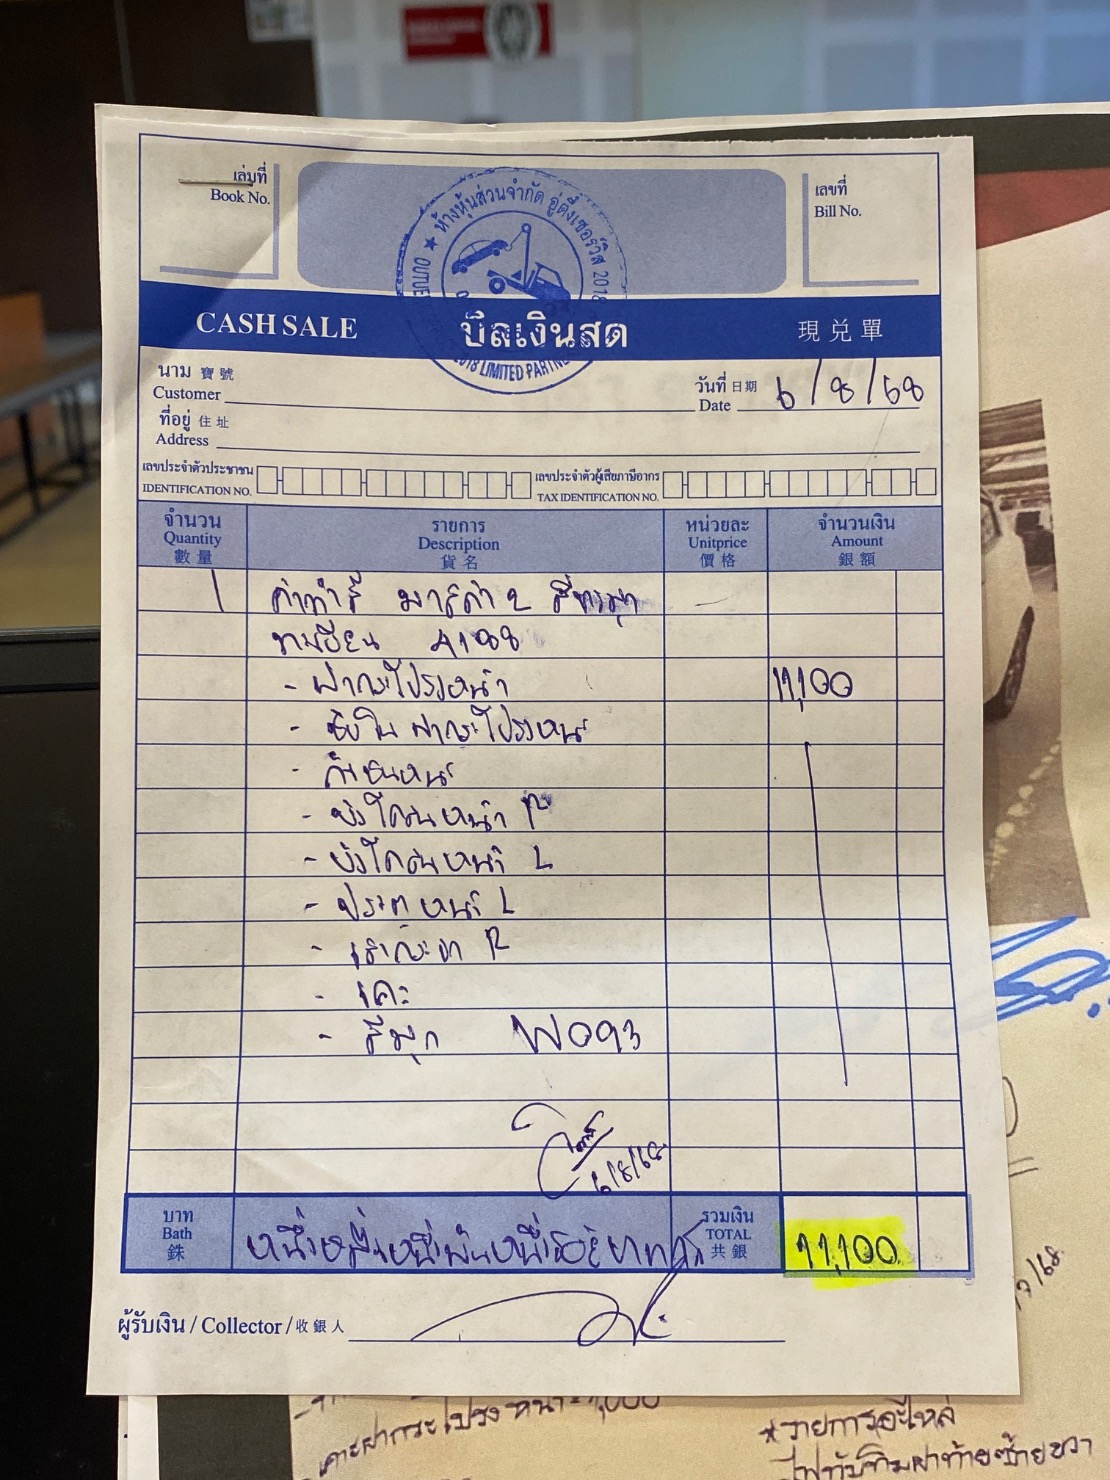 เล่มที่
Book No.
เลขที่
Bill No.
ห้างหุ้นส่วนจำกัด อู่ตึ๋งเซอร์วิส 2018
2018 LIMITED PARTN
CASH SALE บิลเงินสด 現兑單
นาม 寶號
Customer
วันที่ 日期
Date 6/8/68
ที่อยู่ 住址
Address
เลขประจำตัวประชาชน
IDENTIFICATION NO.
เลขประจำตัวผู้เสียภาษีอากร
TAX IDENTIFICATION NO.
จำนวน
Quantity
數量
รายการ
Description
貨名
หน่วยละ
Unitprice
價格
จำนวนเงิน
Amount
銀額
1 ค่าทำสี มาสด้า 2
ทะเบียน
- ฝากระโปรงหน้า 11,100
- ฝากระโปรงหน้า
- กันชนหน้า
- บังโคลนหน้า R
- บังโคลนหน้า L
- ประตูหน้า L
- R
- เคาะ
- สีมุก
6/8/68
บาท
Bath
銖
หนึ่งหมื่นหนึ่งพันหนึ่งร้อยบาท
รวมเงิน
TOTAL
共銀
11,100
ผู้รับเงิน / Collector / 收銀人
เคาะฝากระโปรงหน้า
*รายการอะไหล่
ไฟทับทิมฝาท้ายซ้ายขวา